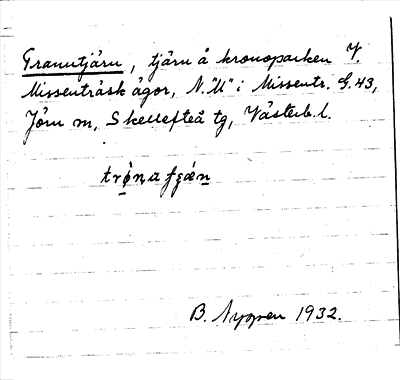 Tranutjärn, tjärn å kronoparken V.
Missenträsk ägor, N. "U" i Missentr. G. 43,
Jörn sn, Skellefteå tg, Västerb. l.
B. Nygren 1932.